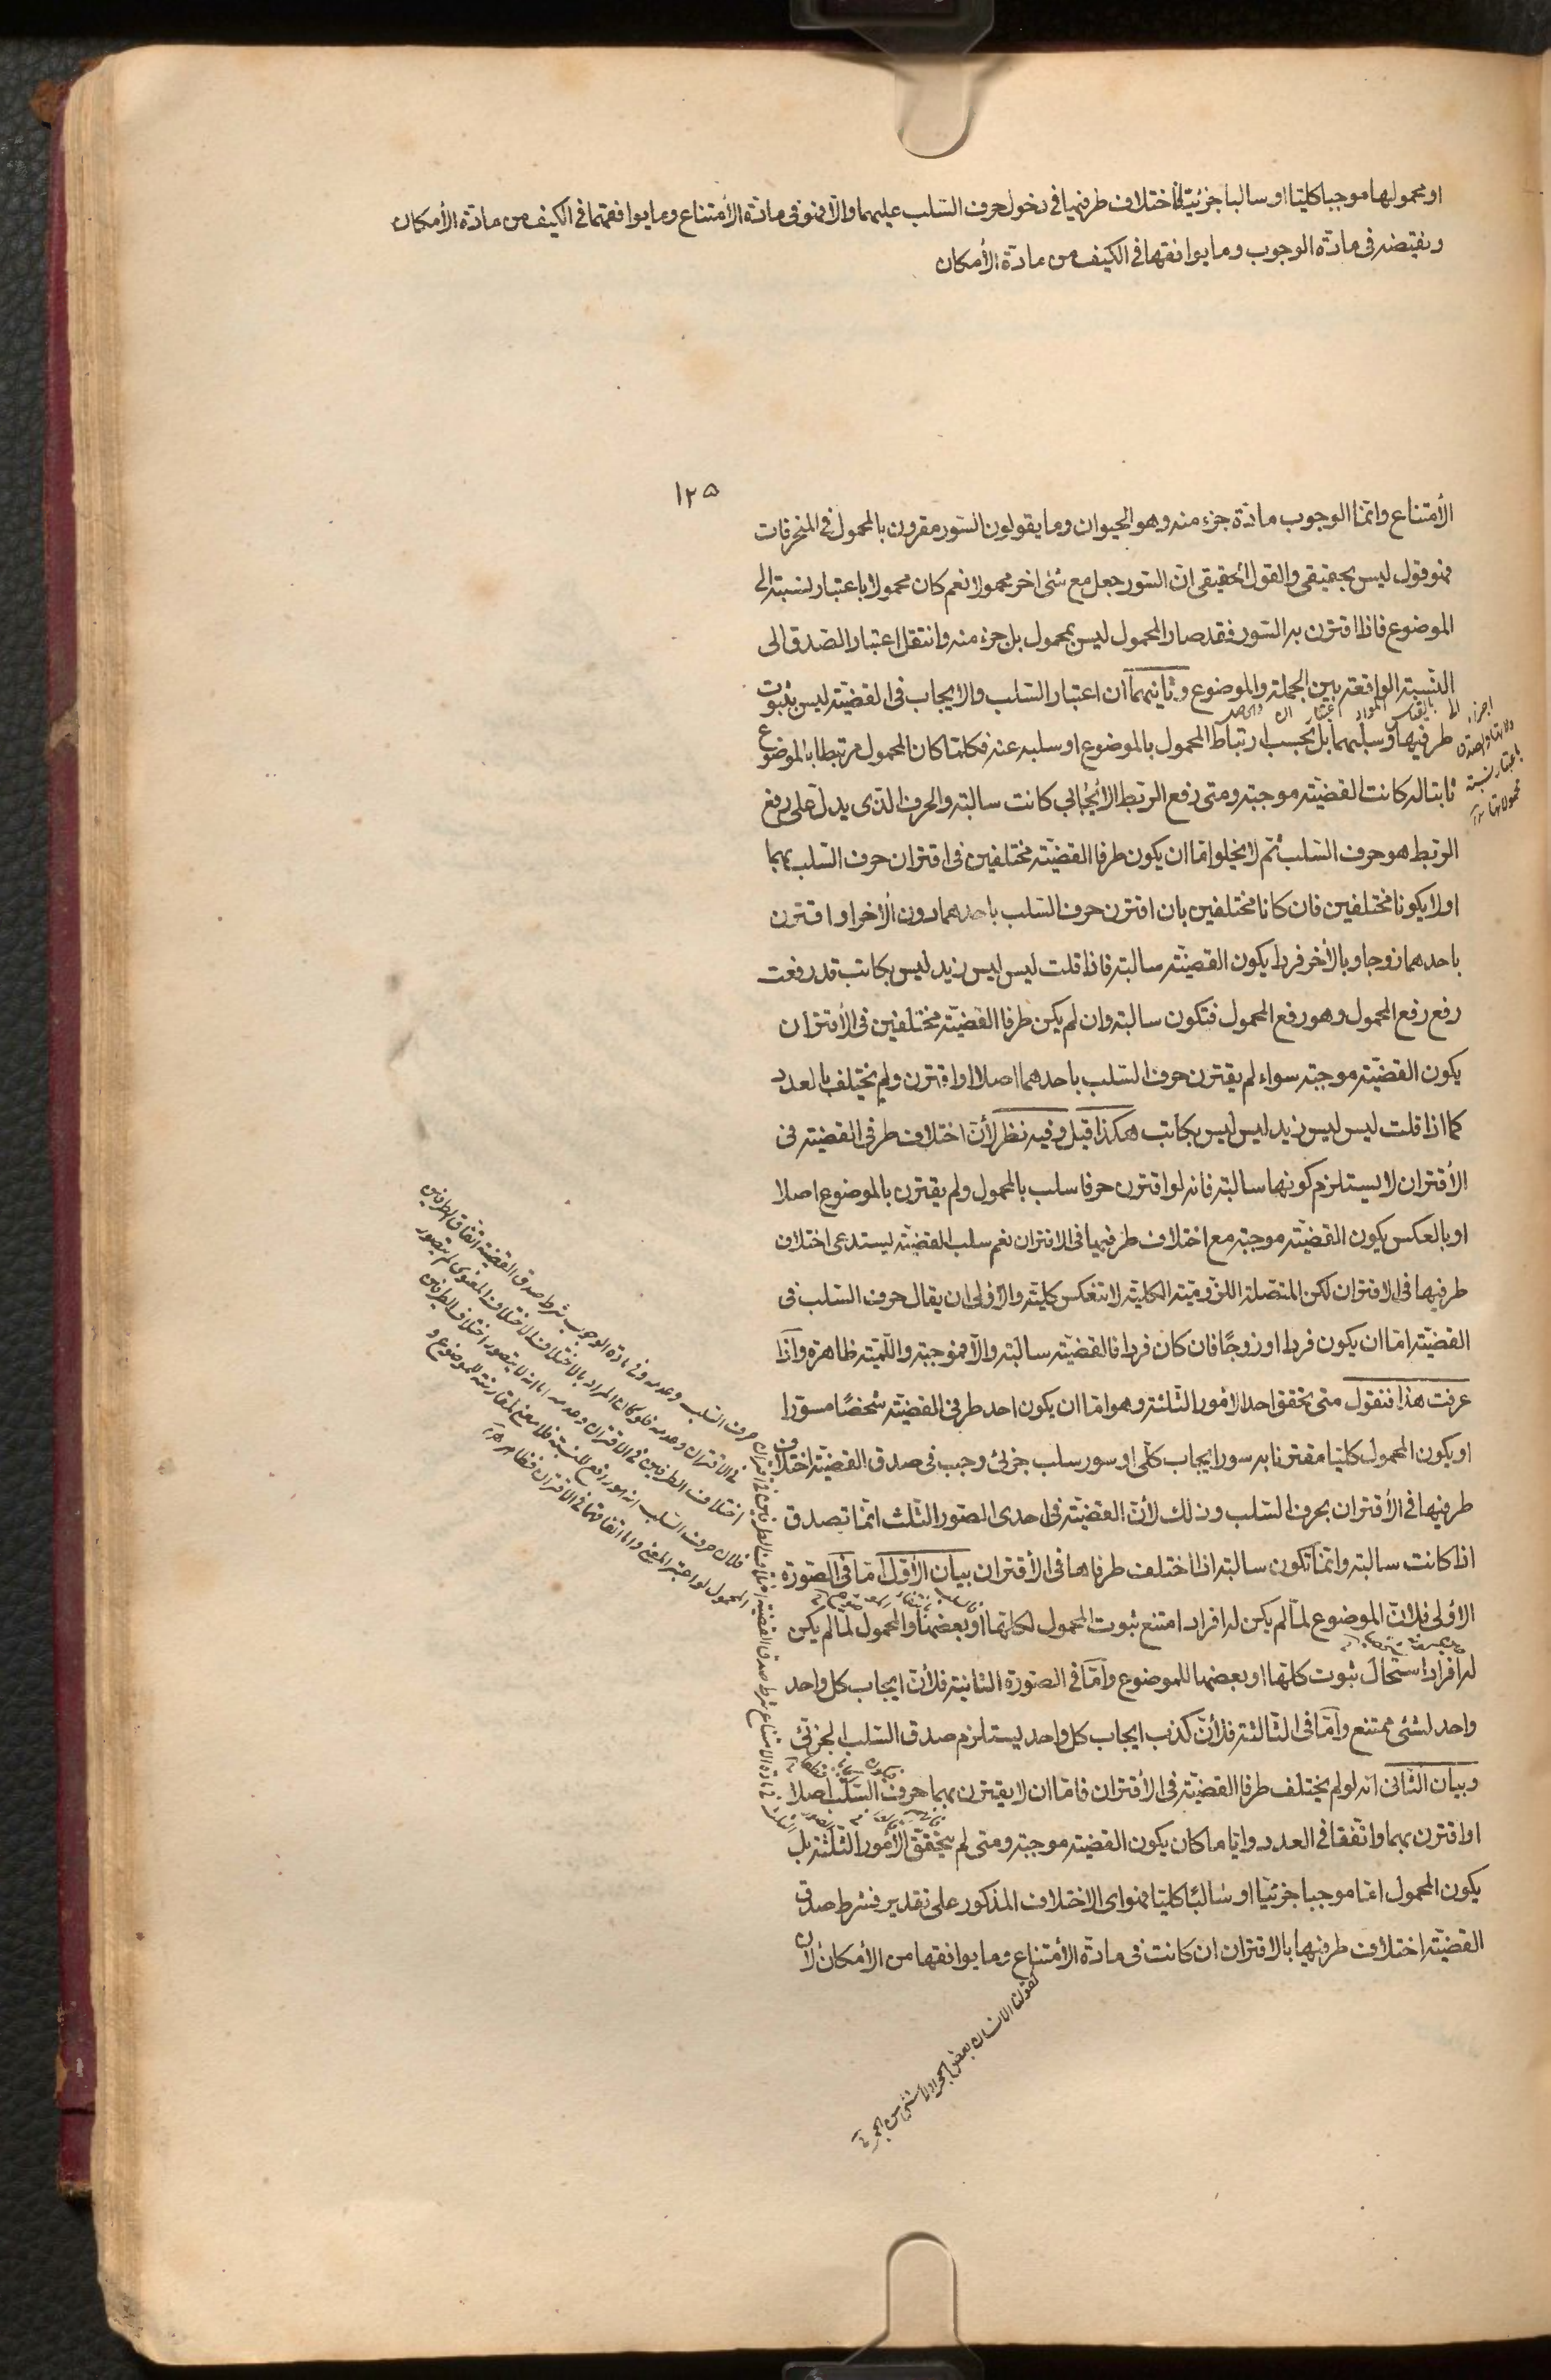 او محمولها موجبا كليا او سالبا جزئية لاختلاف طرفيها في دخول حرف السّلب عليهما والّا فهو في مادّة الأمتناع وما يوافقهما في الكيف من مادّة الأمكان
ونقيضه في مادّة الوجوب وما يوافقها في الكيف من مادّة الأمكان
١٢٥
الأمتناع وانّما الوجوب مادّة جزء منه وهو الحيوان وما يقولون السّور مقرون بالمحمول في المنحرفات
فهو قول ليس بحقيقي والقول الحقيقي انّ السّور جعل مع شئ اخر محمولا نعم كان محمولا باعتبار نسبته الى
الموضوع فاذا اقترن به السّور فقد صار المحمول ليس بمحمول بل جزء منه وانتقل اعتبار الصّدق الى
النّسبة الواقعة بين الجملة والموضوع وثانيهما ان اعتبار السّلب والايجاب في القضيّة ليس بثبوت
طرفيها وسلبهما بل بحسب ارتباط المحمول بالموضوع او سلبه عنه فكلّما كان المحمول مرتبطا بالموضوع
ثابتا له كانت القضيّة موجبة ومتى رفع الربط الأيجابي كانت سالبة والحرف الّذى يدلّ على رفع
الربط هو حرف السّلب ثمّ لا يخلوا امّا ان يكون طرفا القضيّة مختلفين في اقتران حرف السّلب بهما
اولا يكونا مختلفين فان كانا مختلفين بان اقترن حرف السّلب باحدهما دون الأخر او اقترن
باحدهما زوجا وبالأخر فردا يكون القضيّة سالبة فاذا قلت ليس ليس زيد ليس بكاتب قد رفعت
رفع رفع المحمول وهو رفع المحمول فتكون سالبة وان لم يكن طرفا القضيّة مختلفين في الأقتران
يكون القضيّة موجبة سواء لم يقترن حرف السّلب باحدهما اصلا او اقترن ولم يختلف بالعدد
كما اذا قلت ليس ليس زيد ليس ليس بكاتب هكذا قيل وفيه نظر لأنّ اختلاف طرفي القضيّة في
الأقتران لا يستلزم كونها سالبة فانه لو اقترن حرفا سلب بالمحمول ولم يقترن بالموضوع اصلا
او بالعكس يكون القضيّة موجبة مع اختلاف طرفيها في الاقتران نعم سلب القضيّة يستدعى اختلاف
طرفيها في الاقتران لكن المتّصلة اللزوميّة الكلية لا تنعكس كليّة والأولى ان يقال حرف السّلب في
القضيّة امّا ان يكون فردا او زوجًا فان كان فردا فالقضيّة سالبة والّا فموجبة واللّمّية ظاهرة واذا
عرفت هذا فنقول متى تحقق احد الأمور الثّلثة وهو امّا ان يكون احد طرفي القضيّة شخصًا مسوّرا
او يكون المحمول كليّا مقترنا به سور ايجاب كلّى او سور سلب جزئى وجب في صدق القضيّة اختلاف
طرفيها في الأقتران بحرف السّلب وذلك لأنّ القضيّة في احدى الصّور الثّلث انّما تصدق
اذا كانت سالبة وانّما تكون سالبة اذا اختلف طرفاها في الأقتران بيان الأوّل امّا في الصّورة
الأولى فلأنّ الموضوع لمّا لم يكن له افراد امتنع ثبوت المحمول لكلّها او بعضها والمحمول لمّا لم يكن
له افراد استحال ثبوت كلّها او بعضها للموضوع وامّا في الصّورة الثانية فلأنّ ايجاب كلّ واحد
واحد لشئى ممتنع وامّا في الثّالثة فلأنّ كذب ايجاب كلّ واحد يستلزم صدق السّلب الجزئى
وبيان الثّانى انه لو لم يختلف طرفا القضيّة في الأقتران فامّا ان لا يقترن بهما حرف السّلب اصلا
او اقترن بهما واتّفقا في العدد وايّا ما كان يكون القضيّة موجبة ومتى لم يتحقّق الأمور الثّلثة بل
يكون المحمول امّا موجبا جزئيّا او سالبًا كليّا فهو اى الاختلاف المذكور على تقدير فشرط صدق
القضيّة اختلاف طرفيها بالاقتران ان كانت في مادّة الأمتناع وما يوافقها من الأمكان لأن